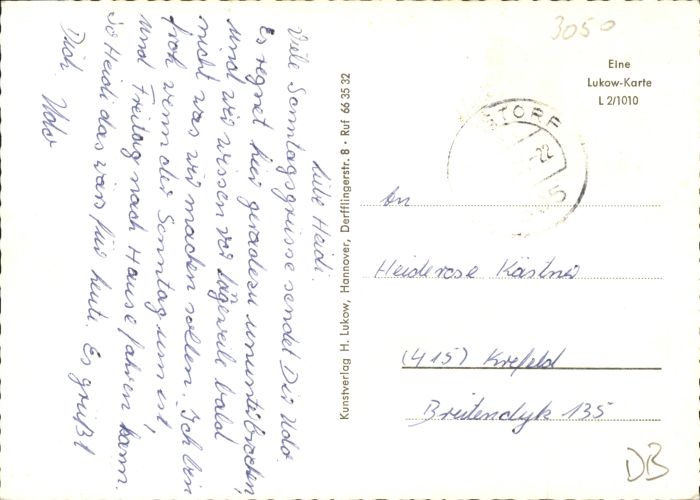 Liebe Heidi.
Viele Sonntagsgrüsse sendet Dir Udo.
Es regnet hier geradezu ununterbrochen,
und wir wissen vor lageweile bald
nicht was wir machen sollen. Ich bin
froh wenn der Sonntag um ist,
und Freitag nach Hause fahren kann.
So Heidi das wars für heute. Es grüßt
Dich Udo
Kunstverlag H. Lukow, Hannover, Derfflingerstr. 8 · Ruf 66 35 32
3050
Eine
Lukow-Karte
L 2/1010
STORF
-22
5
An
Heiderose Kästner
(415) Krefeld
Breitendyk 135
DB